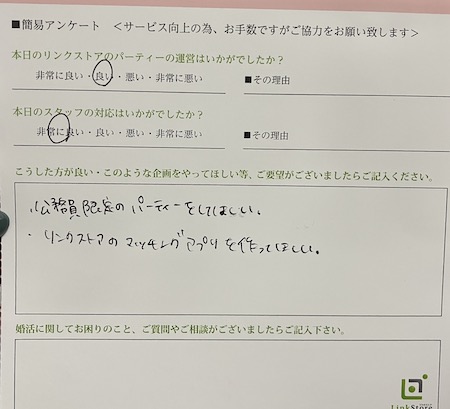 ■簡易アンケート　＜サービス向上の為、お手数ですがご協力をお願い致します＞
本日のリンクストアのパーティーの運営はいかがでしたか？
非常に良い・良い・悪い・非常に悪い　■その理由
本日のスタッフの対応はいかがでしたか？
非常に良い・良い・悪い・非常に悪い　■その理由
こうした方が良い・このような企画をやってほしい等、ご要望がございましたらご記入ください。
・公務員限定のパーティーをしてほしい。
・リンクストアのマッチングアプリを作ってほしい。
婚活に関してお困りのこと、ご質問やご相談がございましたらご記入下さい。
LinkStore